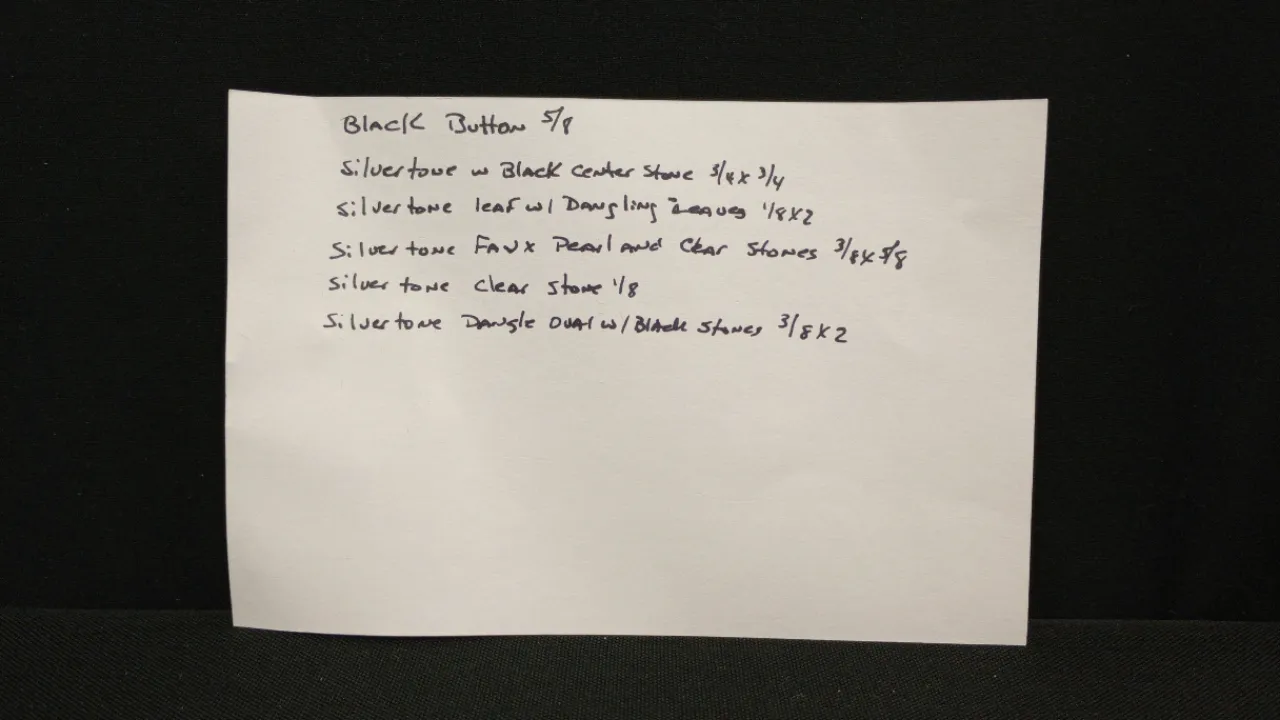 Black Button 5/8
Silvertone w Black Center Stone 3/4 x 3/4
Silvertone leaf w/ Dangling Leaves 1/8 x 2
Silvertone Faux Pearl and Clear Stones 3/8 x 5/8
Silvertone Clear Stone 1/8
Silvertone Dangle Oval w/ Black Stones 3/8 x 2